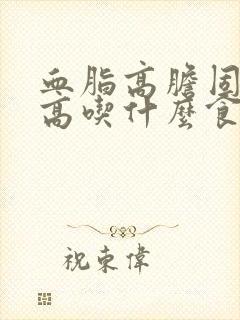 血脂高膽固
高喫什麼食
祝東偉